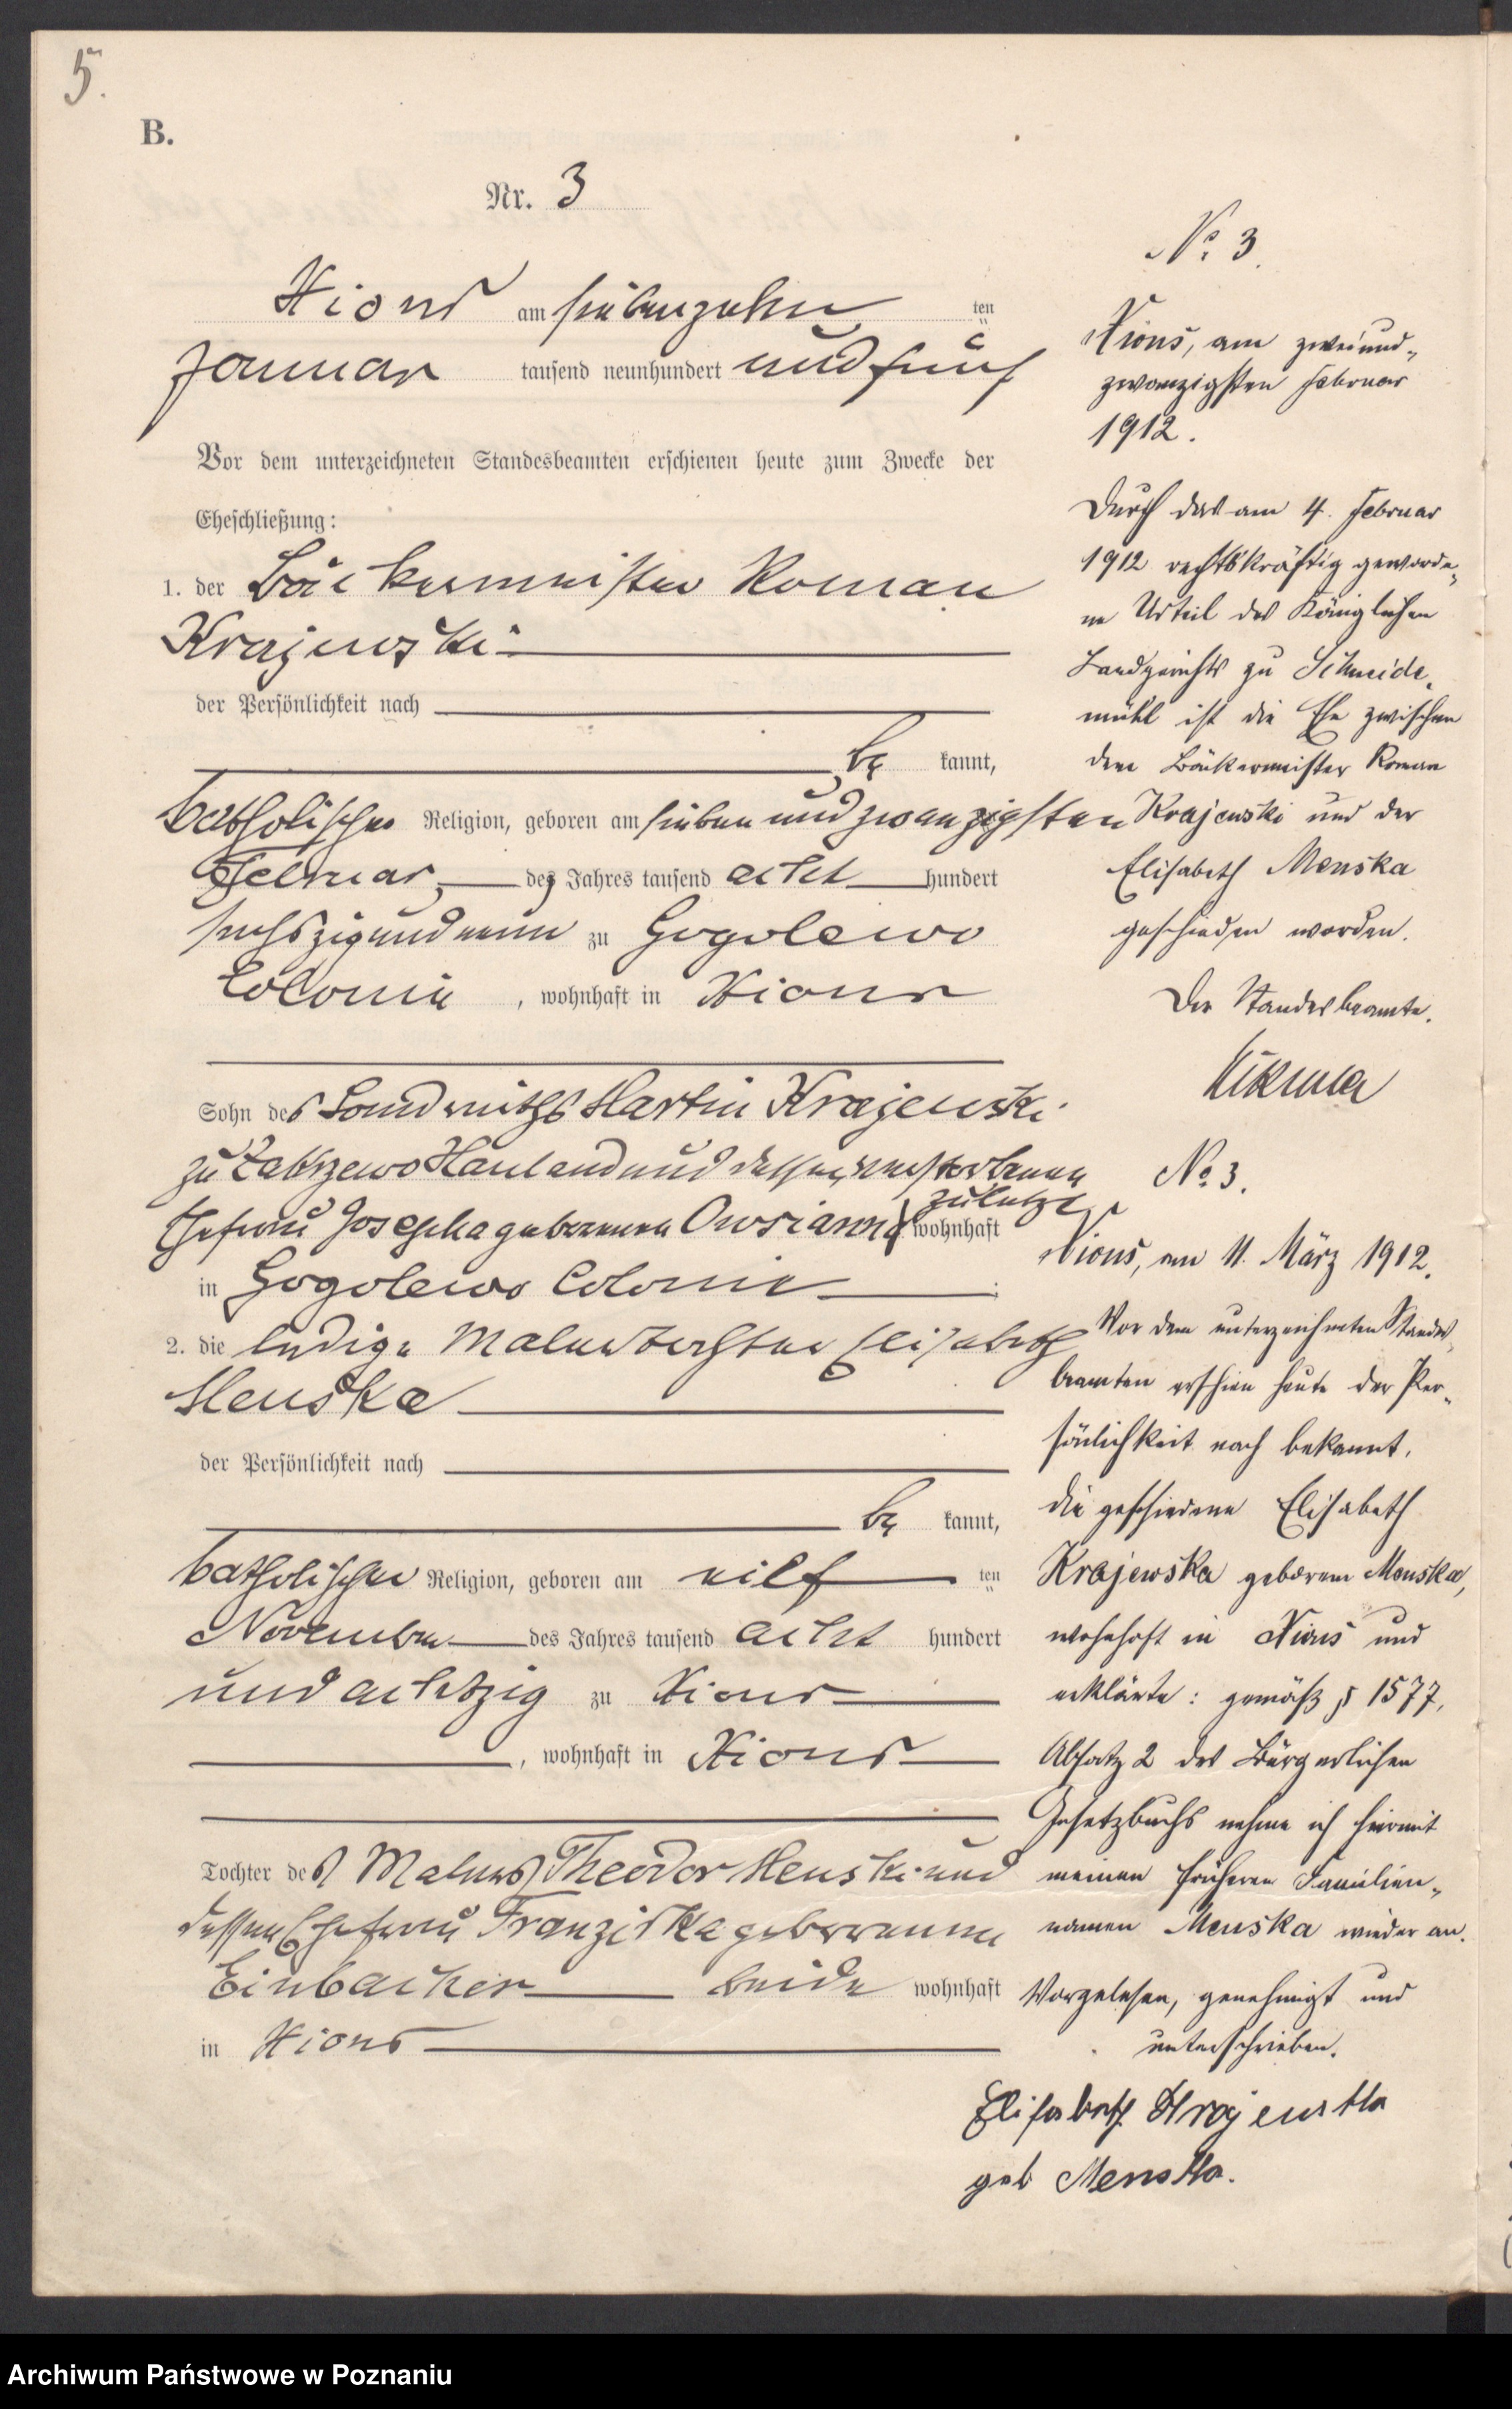 5.
B.
Nr. 3
Xions am siebenzehn ten
Januar tausend neunhundert und fünf
Vor dem unterzeichneten Standesbeamten erschienen heute zum Zwecke der
Eheschließung:
1. der Bäckermeister Roman
Krajewski
der Persönlichkeit nach
be kannt,
katholischer Religion, geboren am siebenundzwanzigsten
Februar des Jahres tausend acht hundert
sechszigundneun zu Gogolewo
Colonie, wohnhaft in Xions
Sohn des Landwirths Martin Krajewski
zu Hauland und dessen verstorbenen
zuletzt
Ehefrau Josepha geborenen wohnhaft
in Gogolewo Colonie
2. die ledige Malertochter Elisabeth
Menska
der Persönlichkeit nach
be kannt,
katholischer Religion, geboren am eilf ten
November des Jahres tausend acht hundert
und achtzig zu Xions
, wohnhaft in Xions
Tochter des Malers Theodor Menski und
dessen Ehefrau Franziska geborenen
Einbacher beide wohnhaft
in Xions
No. 3.
Xions, am zweiund-
zwanzigsten Februar
1912.
Durch das am 4. Februar
1912 rechtskräftig geworde-
ne Urteil des Königlichen
Landgerichts zu Schneide-
mühl ist die Ehe zwischen
dem Bäckermeister Roman
Krajewski und der
Elisabeth Menska
geschieden worden.
Der Standesbeamte.
No. 3.
Xions, am 11. März 1912.
Vor dem unterzeichneten Standes-
beamten erschien heute der Per-
sönlichkeit nach bekannt,
die geschiedene Elisabeth
Krajewska geborene Menska,
wohnhaft in Xions und
erklärte: gemäß § 1577,
Absatz 2 des Bürgerlichen
Gesetzbuchs nehme ich hiermit
meinen früheren Familien-
namen Menska wieder an.
Vorgelesen, genehmigt und
unterschrieben.
Elisabeth Krajewska
geb Menska.
Archiwum Państwowe w Poznaniu